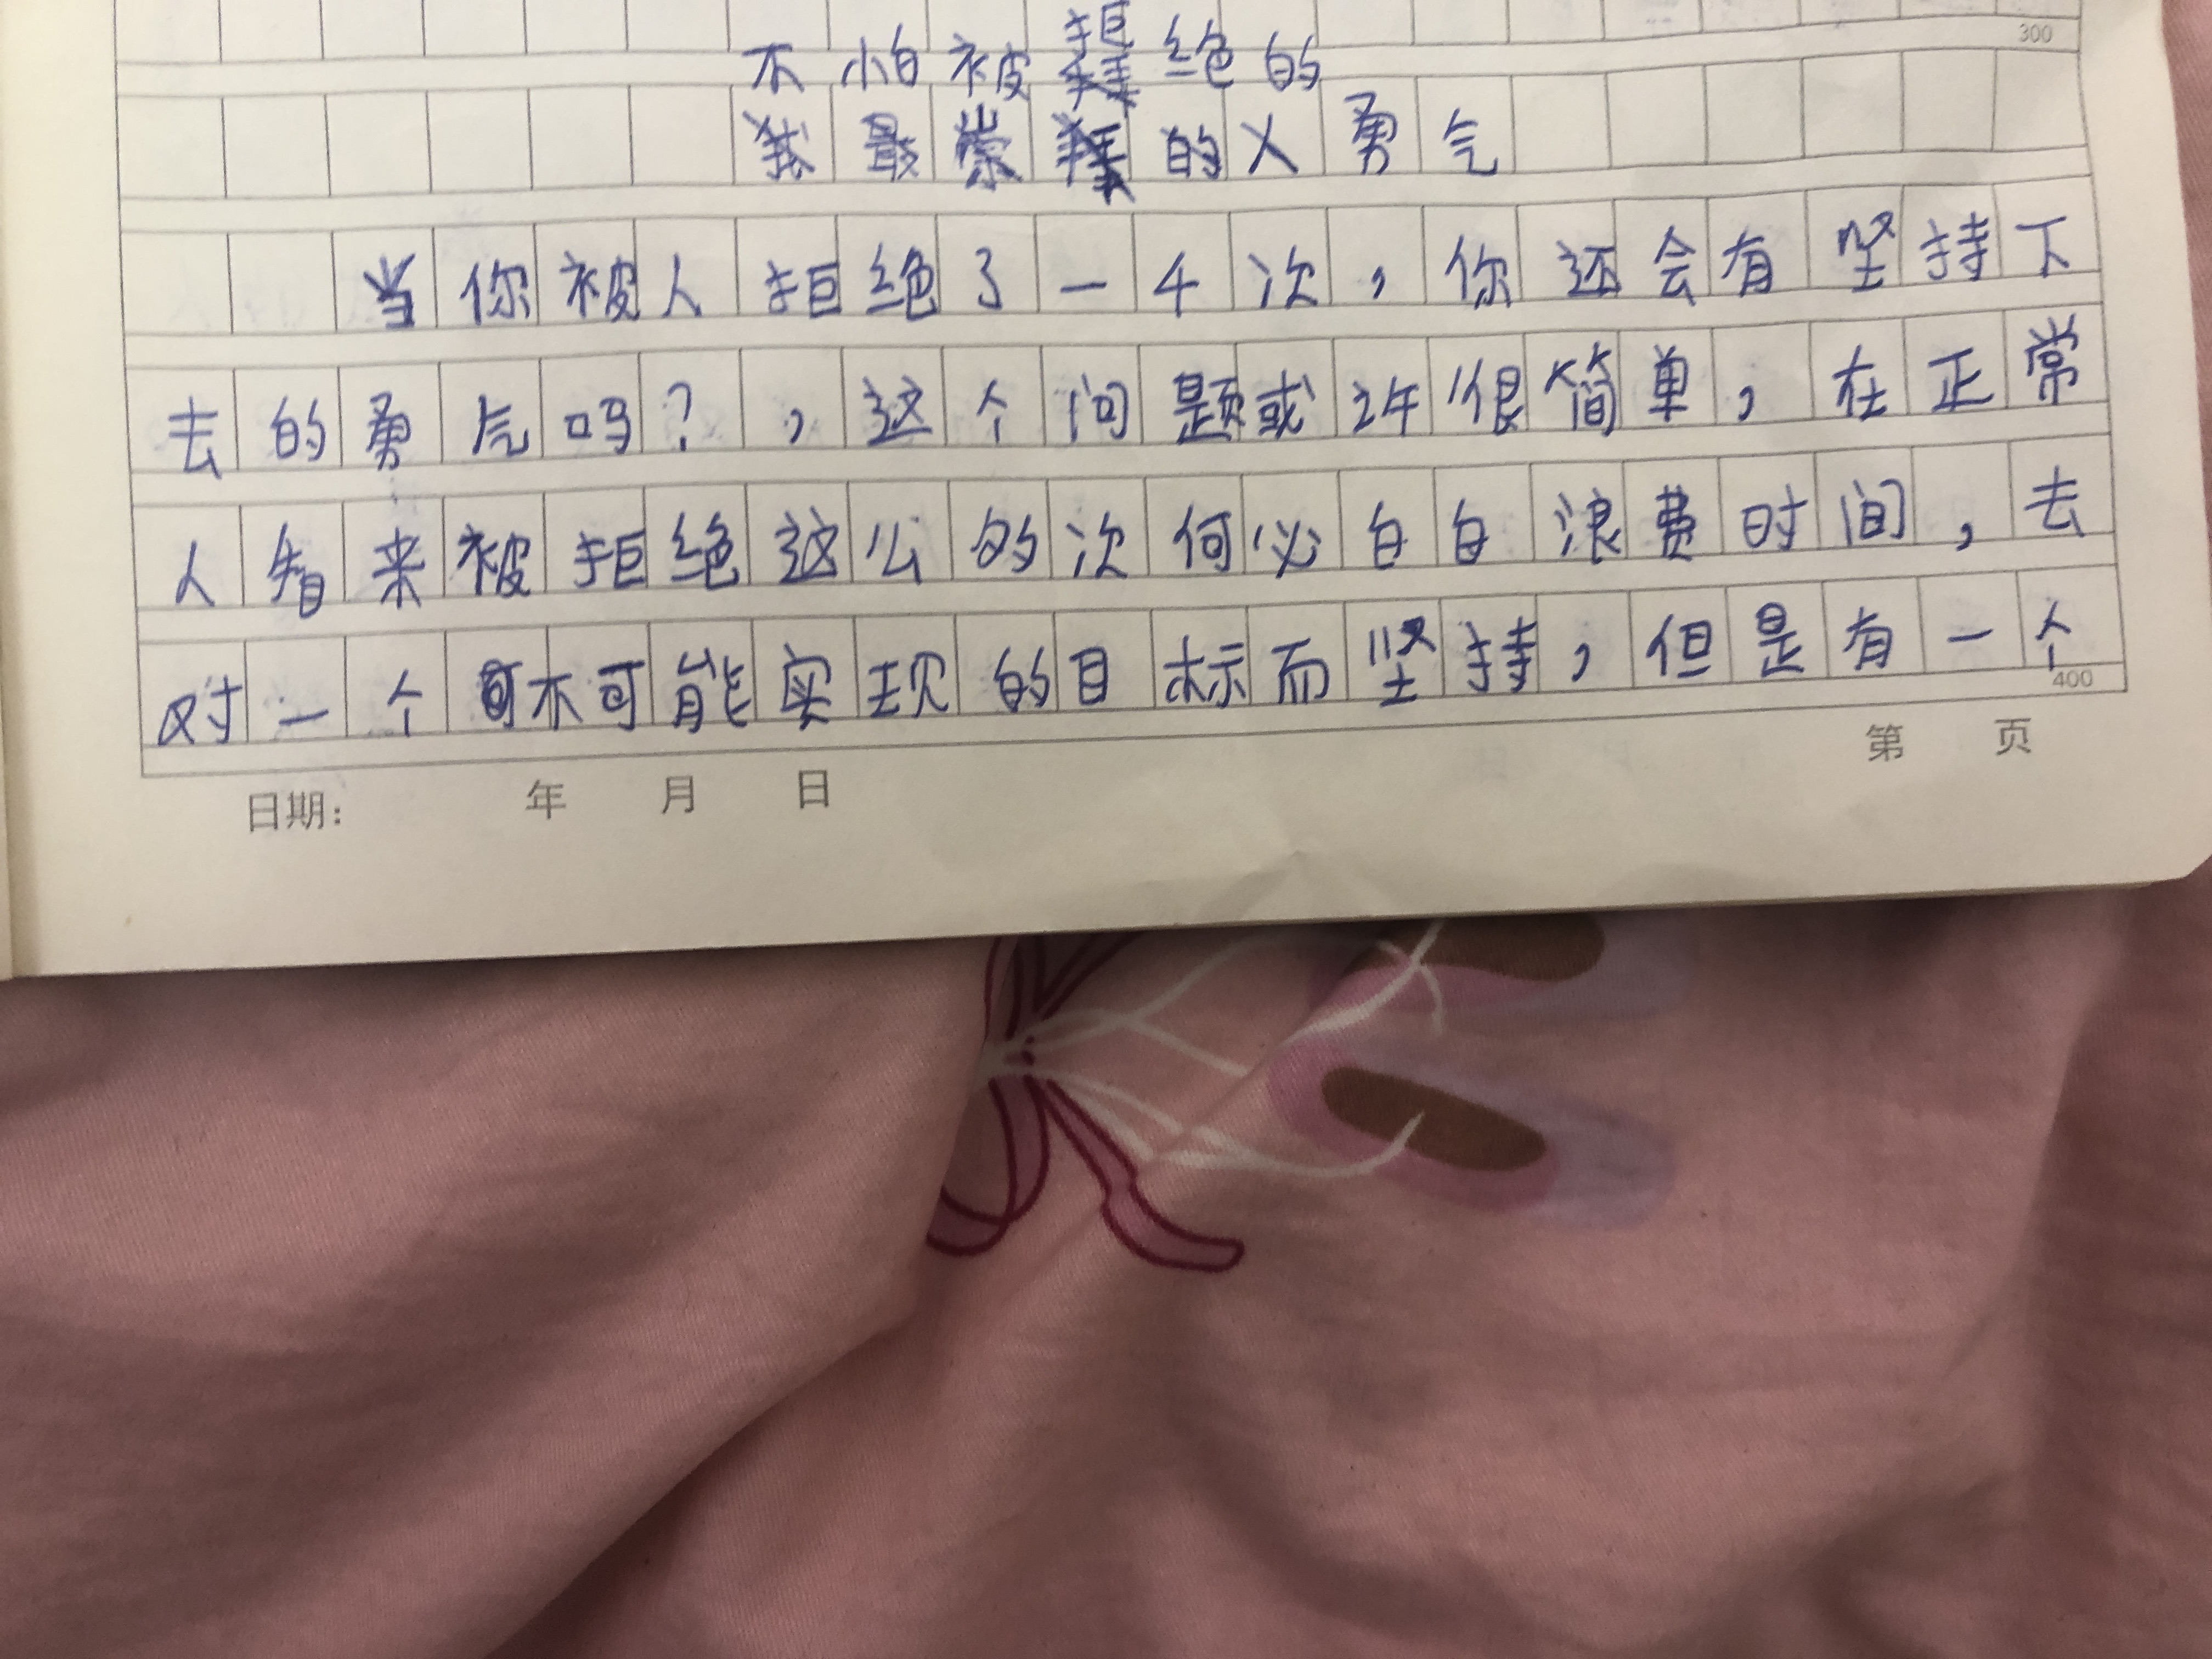 300
不怕被拒绝的
我最崇拜的人勇气
当你被人拒绝了一4次，你还会有坚持下
去的勇气吗？，这个问题或许很简单，在正常
人看来被拒绝这么的次何必白白浪费时间，去
对一个不可能实现的目标而坚持，但是有一个
400
第 页
日期： 年 月 日